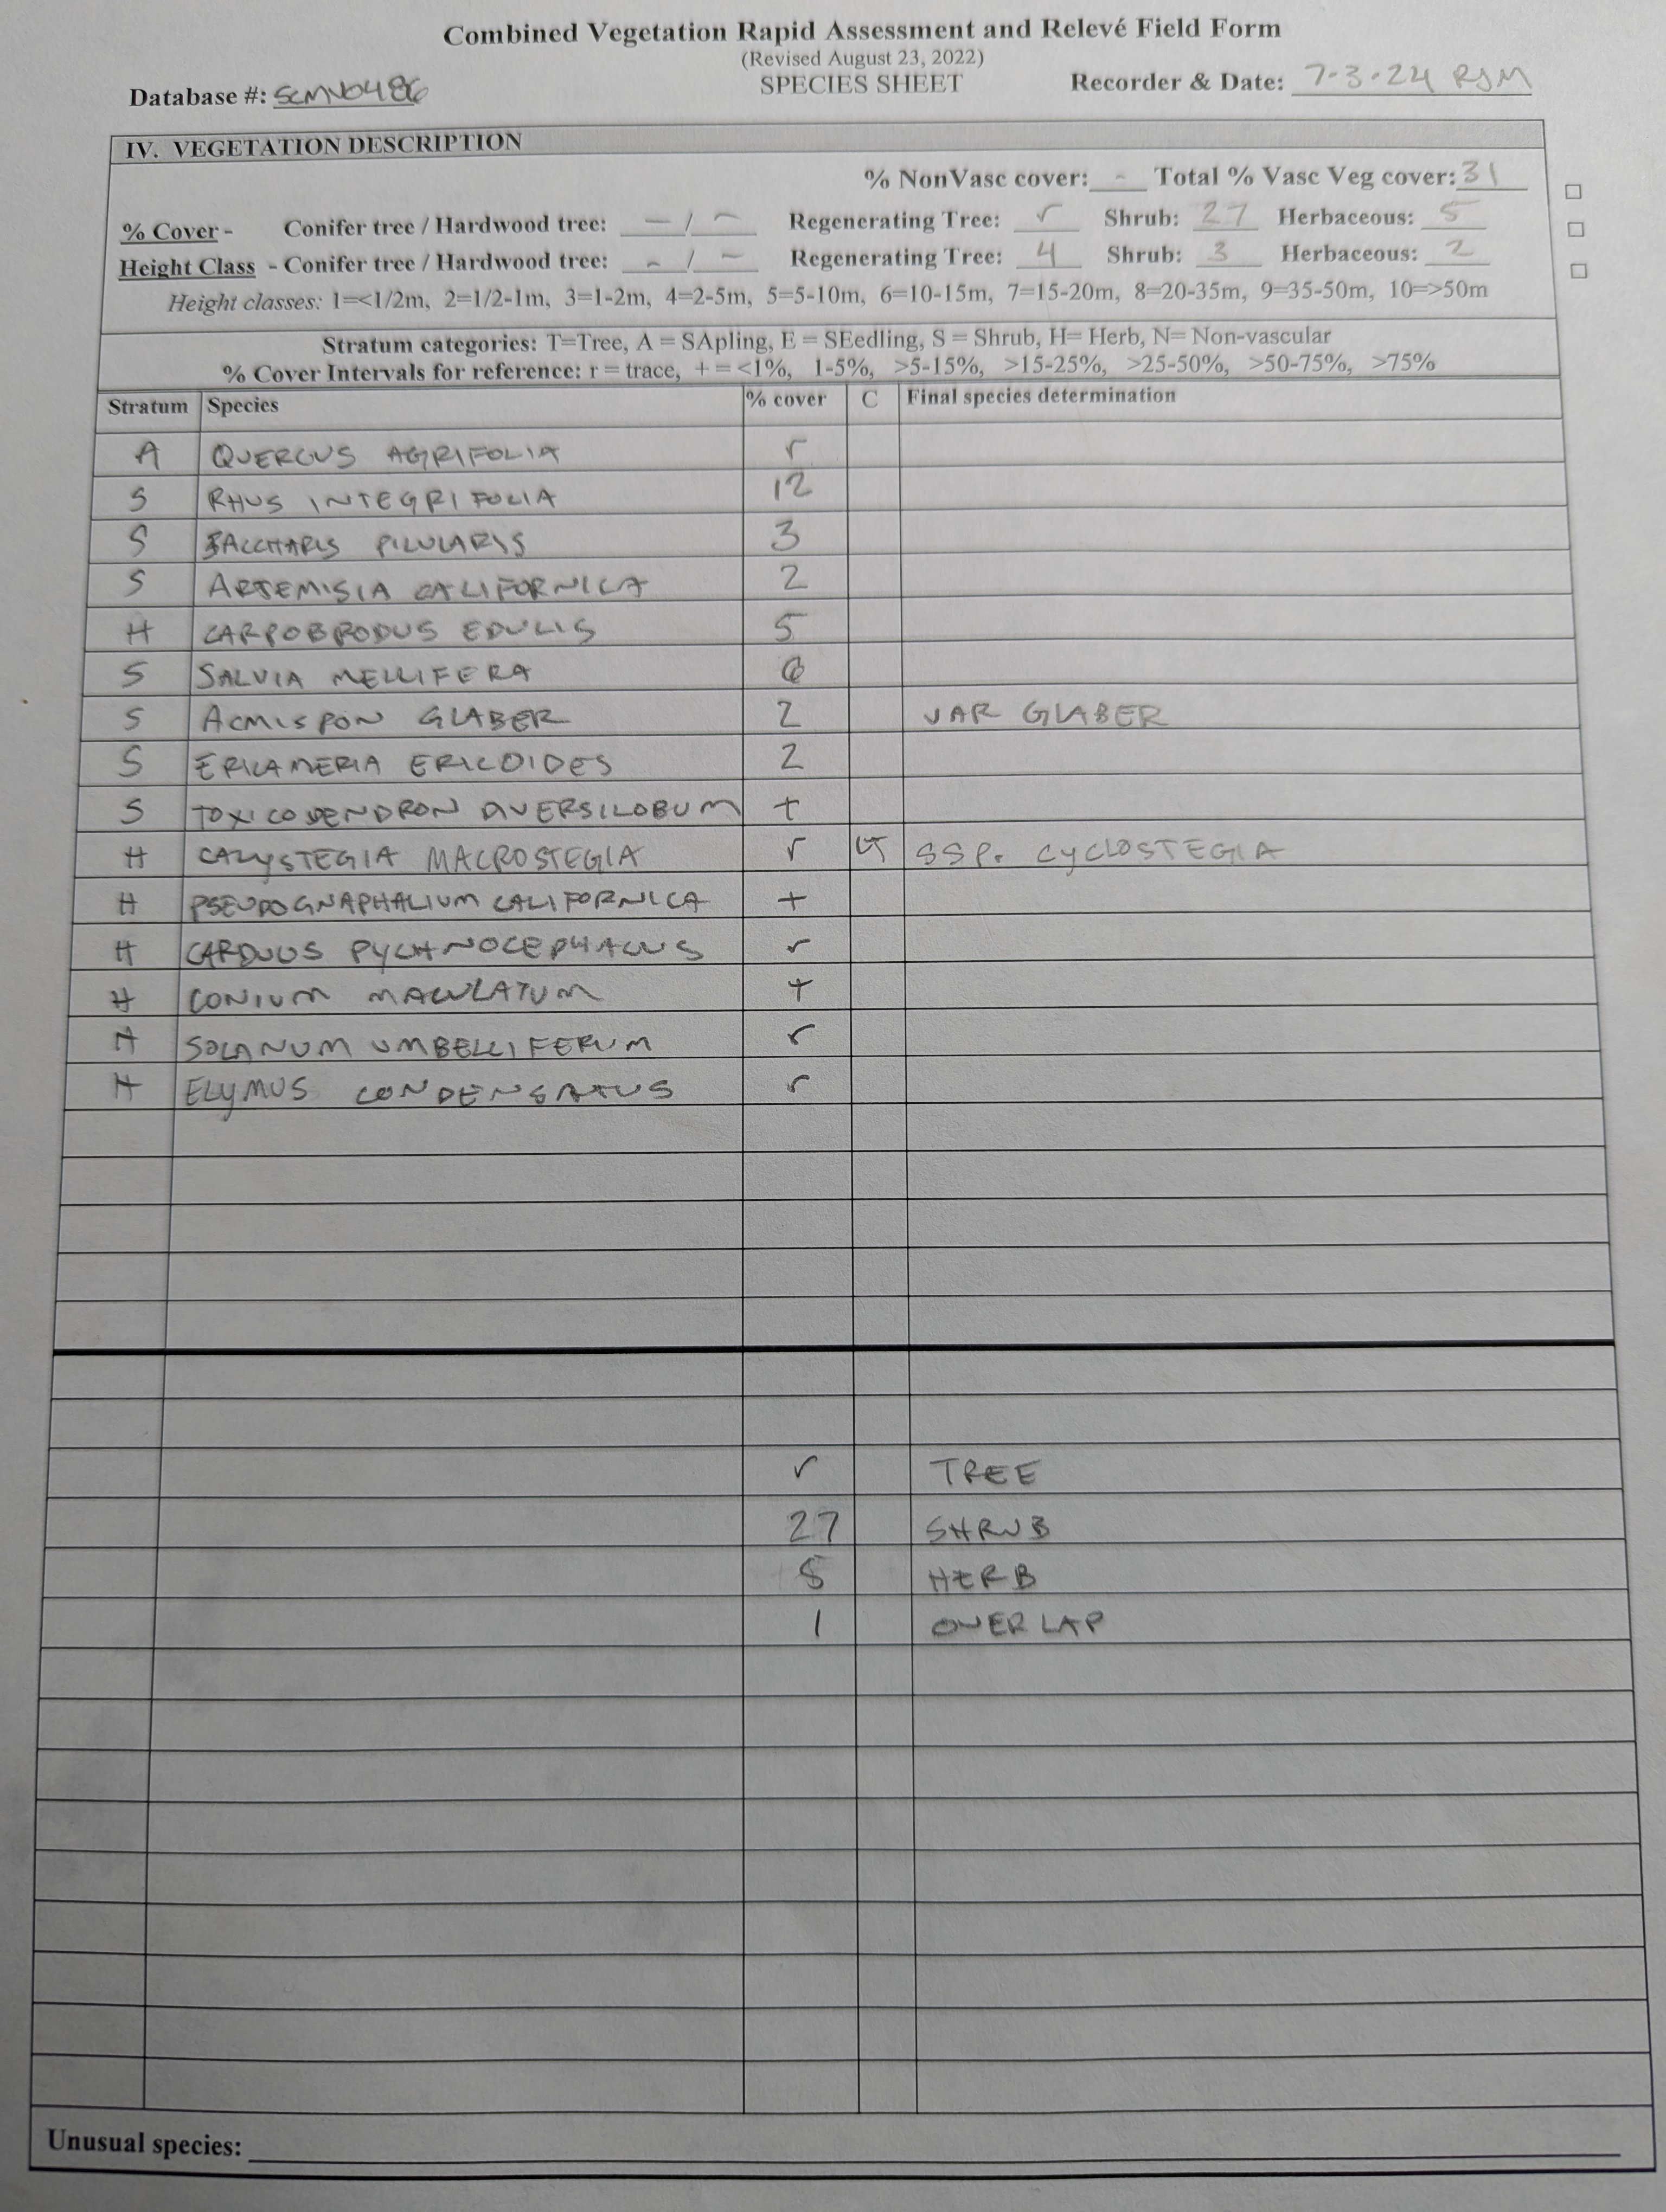 Combined Vegetation Rapid Assessment and Relevé Field Form
(Revised August 23, 2022)
Database #: SCMV0486 SPECIES SHEET Recorder & Date: 7-3-24 RJM
IV. VEGETATION DESCRIPTION
% NonVasc cover: - Total % Vasc Veg cover: 31
% Cover - Conifer tree / Hardwood tree: - / - Regenerating Tree: r Shrub: 27 Herbaceous: 5
Height Class - Conifer tree / Hardwood tree: - / - Regenerating Tree: 4 Shrub: 3 Herbaceous: 2
Height classes: 1=<1/2m, 2=1/2-1m, 3=1-2m, 4=2-5m, 5=5-10m, 6=10-15m, 7=15-20m, 8=20-35m, 9=35-50m, 10=>50m
Stratum categories: T=Tree, A = SApling, E = SEedling, S = Shrub, H= Herb, N= Non-vascular
% Cover Intervals for reference: r = trace, + = <1%, 1-5%, >5-15%, >15-25%, >25-50%, >50-75%, >75%
Stratum Species % cover C Final species determination
A QUERCUS AGRIFOLIA r
S RHUS INTEGRIFOLIA 12
S BACCHARIS PILULARIS 3
S ARTEMISIA CALIFORNICA 2
H CARPOBRODUS EDULIS 5
S SALVIA MELLIFERA 6
S ACMISPON GLABER 2 VAR GLABER
S ERICAMERIA ERICOIDES 2
S TOXICODENDRON DIVERSILOBUM +
H CALYSTEGIA MACROSTEGIA r SSP. CYCLOSTEGIA
H PSEUDOGNAPHALIUM CALIFORNICA +
H CARDUUS PYCHNOCEPHALUS r
H CONIUM MACULATUM +
H SOLANUM UMBELLIFERUM r
H ELYMUS CONDENSATUS r
r TREE
27 SHRUB
5 HERB
1 OVERLAP
Unusual species: